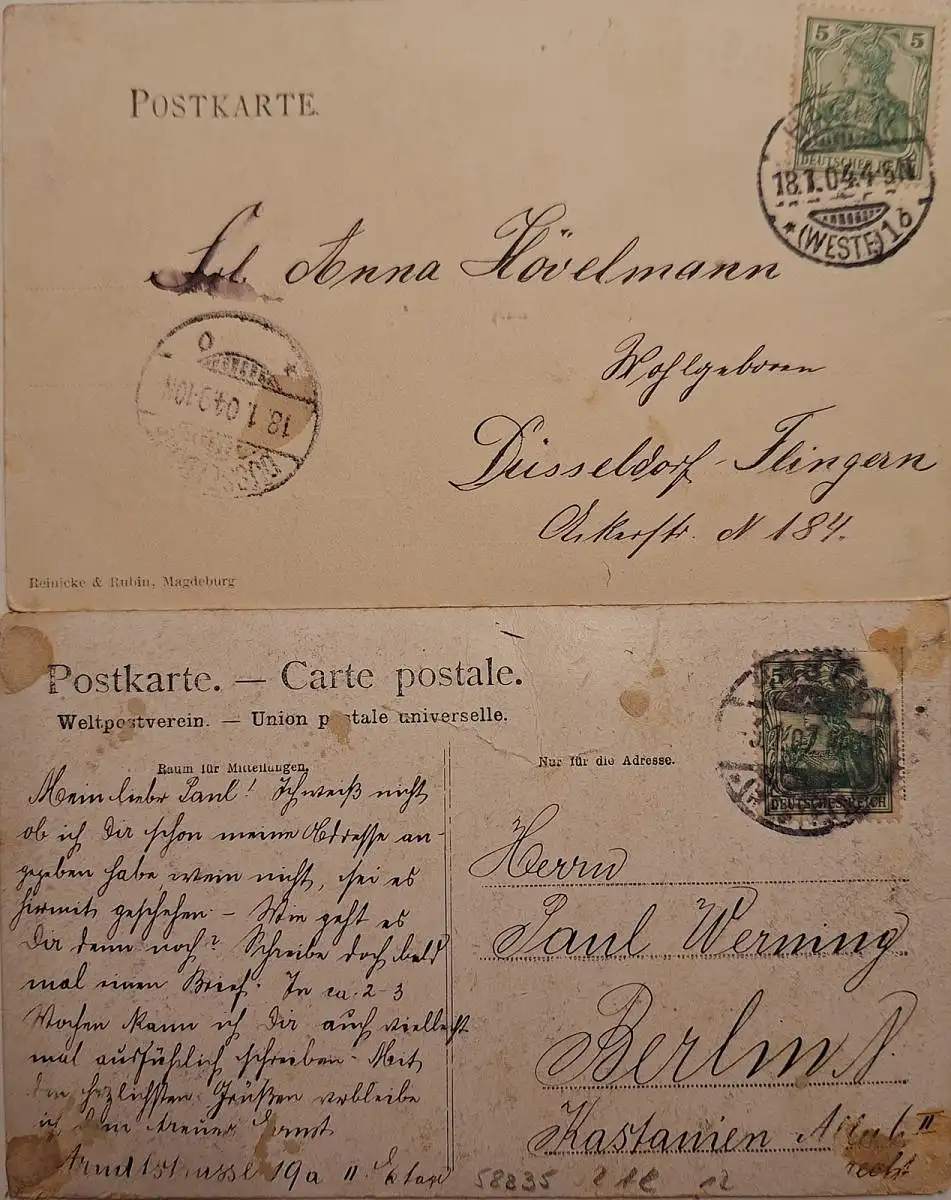 POSTKARTE.
5 5
DEUTSCHES REICH
18.1.04.4-5N
* (WESTF) 1b
Frl. Anna Hövelmann
Wohlgeboren
Düsseldorf-Flingern
Ackerstr. N 184.
18.1.04.9-10N
Reinicke & Rubin, Magdeburg
Postkarte. — Carte postale.
Weltpostverein. — Union postale universelle.
Raum für Mitteilungen.
Nur für die Adresse.
5
DEUTSCHES REICH
Mein lieber Paul! Ich weiß nicht
ob ich Dir schon meine Addresse an-
gegeben habe, wenn nicht, sei es
hiermit geschehen. – Wie geht es
Dir denn noch? Schreibe doch bald
mal einen Brief. In ca. 2-3
Wochen kann ich Dir auch vielleicht
mal ausführlich schreiben. Mit
den herzlichsten Grüßen verbleibe
ich Dein treuer Ernst
19a II Etage
Herrn
Paul Werning
Berlin N.
Kastanien Allee II
recht
58835 12